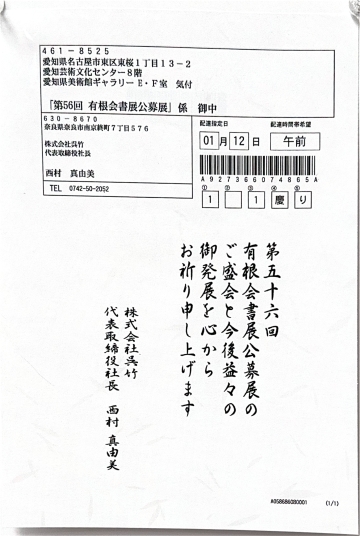 461-8525
愛知県名古屋市東区東桜1丁目13-2
愛知芸術文化センター8階
愛知県美術館ギャラリーE・F室 気付
「第56回 有根会書展公募展」係 御中
630-8670
奈良県奈良市南京終町7丁目576
株式会社呉竹
代表取締役社長
西村 真由美
TEL 0742-50-2052
配達指定日
配達時間帯希望
01月12日
午前
A927366074865A
① ② ③ ④ ⑤
1 1 慶 り
第五十六回
有根会書展公募展の
ご盛会と今後益々の
御発展を心から
お祈り申し上げます
株式会社呉竹
代表取締役社長 西村 真由美
A058686080001 (1/1)